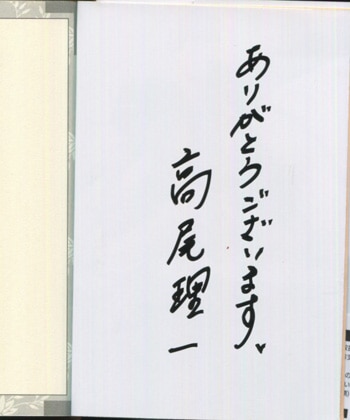 ありがとうございます♥
高尾理一